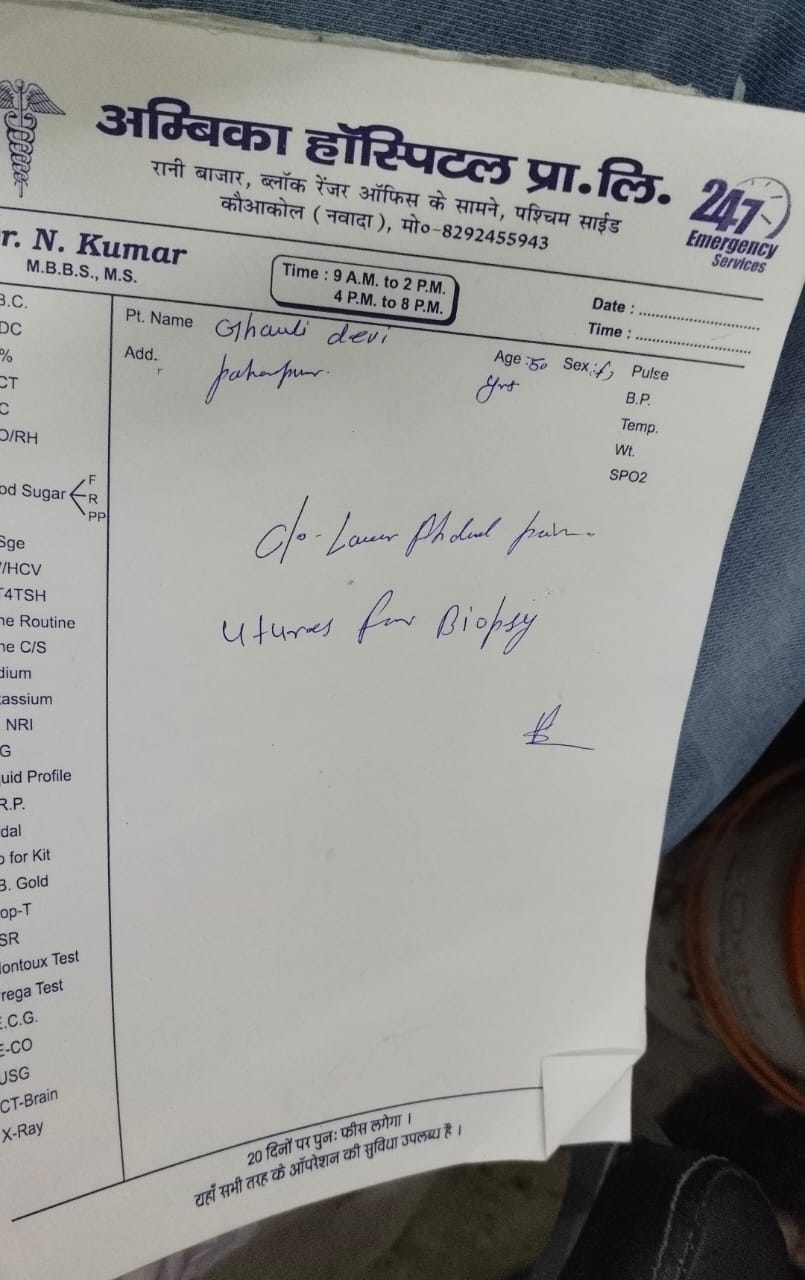 अम्बिका हॉस्पिटल प्रा.लि.
रानी बाजार, ब्लॉक रेंजर ऑफिस के सामने, पश्चिम साईड
कौआकोल ( नवादा ), मो०-8292455943
247
Emergency
Services
r. N. Kumar
M.B.B.S., M.S.
Time : 9 A.M. to 2 P.M.
4 P.M. to 8 P.M.
Date :
Time :
Pt. Name devi
Add.
Age : 50 yrs Sex : f Pulse
B.P.
Temp.
Wt.
SPO2
B.C.
DC
%
CT
C
O/RH
od Sugar F
R
PP
Sge
/HCV
T4TSH
ne Routine
ne C/S
dium
tassium
NRI
G
uid Profile
R.P.
dal
o for Kit
B. Gold
op-T
SR
Montoux Test
rega Test
E.C.G.
E-CO
USG
CT-Brain
X-Ray
c/o - Lower pain
for Biopsy
20 दिनों पर पुनः फीस लगेगा ।
यहाँ सभी तरह के ऑपरेशन की सुविधा उपलब्ध है ।